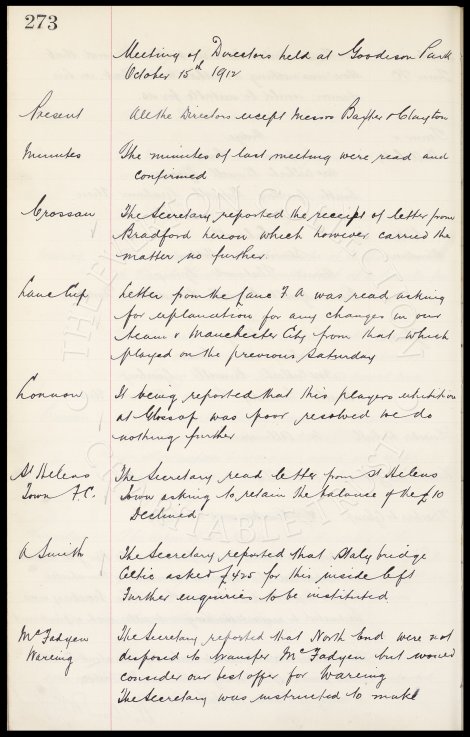 273
Meeting of Directors held at Goodison Park
October 15th 1912
Present All the Directors except Messrs Baxter & Clayton
Minutes The minutes of last meeting were read and
confirmed
Crossan The Secretary reported the receipt of letter from
Bradford hereon which however carried the
matter no further.
Lanc Cup Letter from the Lanc F A was read asking
for explanation for any changes in our
team v Manchester City from that which
played on the previous Saturday
Connon It being reported that this players exhibition
at Glossop was poor resolved we do
nothing further
St Helens The Secretary read letter from St Helens
Town F.C. Town asking to retain the balance of the £10
Declined
A Smith The Secretary reported that Stalybridge
Celtic asked £425 for this inside left
Further enquiries to be instituted
McFadyen The Secretary reported that North End were not
Wareing disposed to transfer McFadyen but would
consider our best offer for Wareing
The Secretary was instructed to make